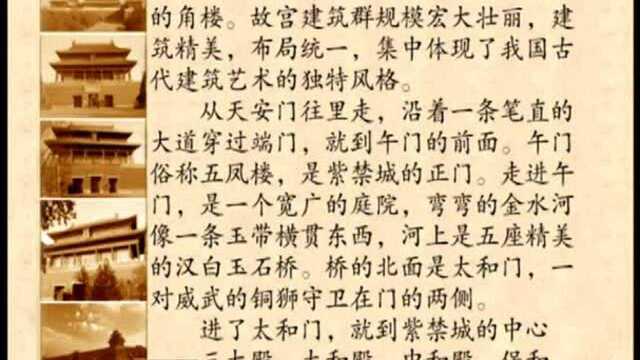 的角楼。故宫建筑群规模宏大壮丽，建
筑精美，布局统一，集中体现了我国古
代建筑艺术的独特风格。
从天安门往里走，沿着一条笔直的
大道穿过端门，就到午门的前面。午门
俗称五凤楼，是紫禁城的正门。走进午
门，是一个宽广的庭院，弯弯的金水河
像一条玉带横贯东西，河上是五座精美
的汉白玉石桥。桥的北面是太和门，一
对威武的铜狮守卫在门的两侧。
进了太和门，就到紫禁城的中心
三大殿，太和殿、中和殿、保和